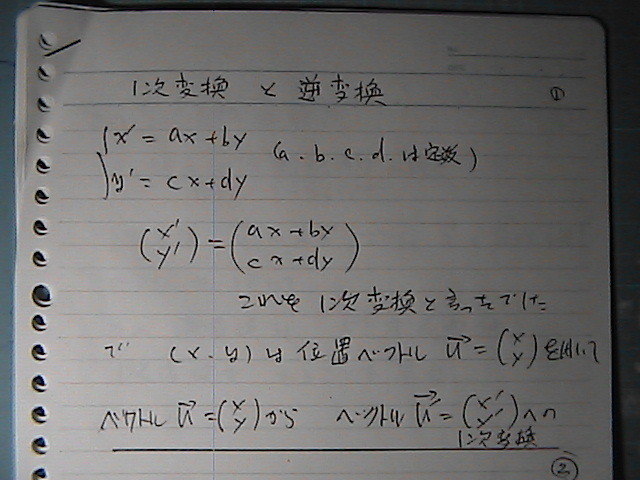 1次変換 と 逆変換 ①
x' = ax+by
(a.b.c.d.は定数)
y' = cx+dy
(x' y') = (ax+by cx+dy)
これを 1次変換と言ってました
で (x.y)は位置ベクトル u→ = (x y)を用いて
ベクトル u→ = (x y)から ベクトル u'→ = (x' y')への
1次変換
②